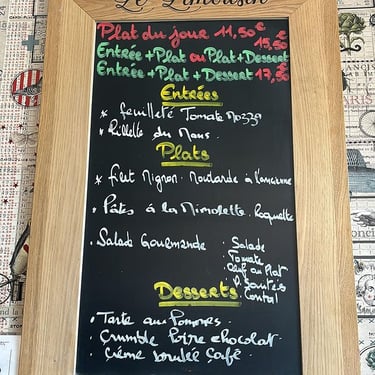 Le Limousin
Plat du jour 11,50€
Entrée + Plat ou Plat + Dessert 15,50€
Entrée + Plat + Dessert 17,50€
Entrées
* feuilleté Tomate Mozza
• Rillette du Mans
Plats
* filet Mignon. Moutarde à l'ancienne
• Pâtes à la Mimolette. Roquette
• Salade Gourmande : Salade
Tomate
Oeuf au Plat
P. Sautés
Cantal
Desserts
• Tarte aux Pommes
• Crumble Poire chocolat
• Crème brulée Café